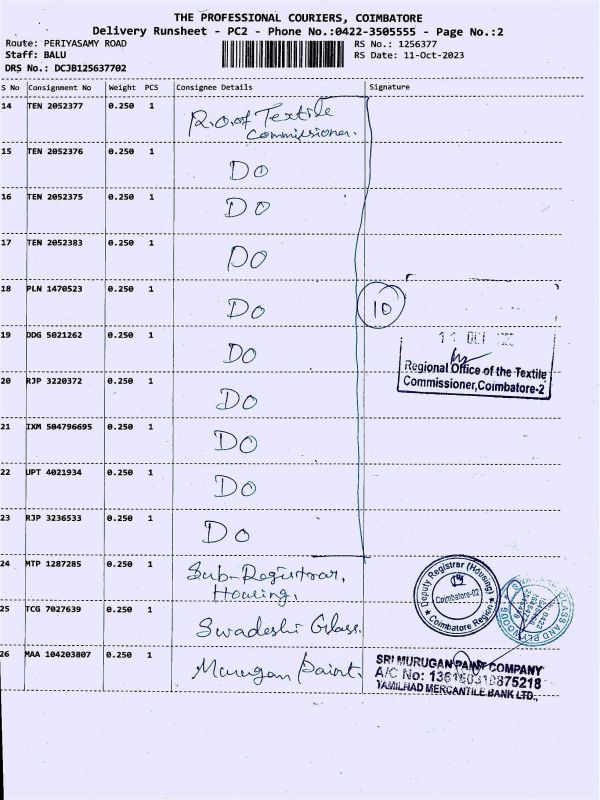 THE PROFESSIONAL COURIERS, COIMBATORE
Delivery Runsheet - PC2 - Phone No.:0422-3505555 - Page No.:2
Route: PERIYASAMY ROAD
RS No.: 1256377
Staff: BALU
RS Date: 11-Oct-2023
DRS No.: DCJB125637702
S No Consignment No Weight PCS Consignee Details Signature
14 TEN 2052377 0.250 1 R.O.of Textile
Commissioner.
15 TEN 2052376 0.250 1 Do
16 TEN 2052375 0.250 1 Do
17 TEN 2052383 0.250 1 Do
18 PLN 1470523 0.250 1 Do 10
19 DDG 5021262 0.250 1 Do
11 OCT
Regional Office of the Textile
Commissioner,Coimbatore-2
20 RJP 3220372 0.250 1 Do
21 IXM 504796695 0.250 1 Do
22 UPT 4021934 0.250 1 Do
23 RJP 3236533 0.250 1 Do
24 MTP 1287285 0.250 1 Sub-Registrar,
Housing,
Deputy Registrar (Housing)
Coimbatore-02
Coimbatore Region
25 TCG 7027639 0.250 1 Swadeshi Glass.
GLASS AND PLYWOOD
26 MAA 104203807 0.250 1 Murugan Paint.
SRI MURUGAN PAINT COMPANY
A/C No:
TAMILNAD MERCANTILE BANK LTD.,